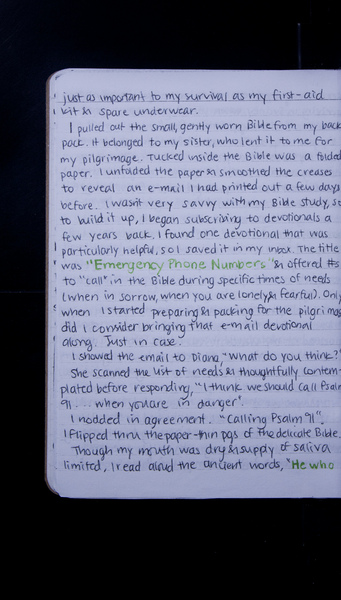 just as important to my survival as my first-aid
kit & spare underwear.
I pulled out the small, gently worn Bible from my back
pack. It belonged to my sister, who lent it to me for
my pilgrimage. Tucked inside the Bible was a folded
paper. I unfolded the paper & smoothed the creases
to reveal an e-mail I had printed out a few days
before. I wasn't very savvy with my Bible study, so
to build it up, I began subscribing to devotionals a
few years back. I found one devotional that was
particularly helpful, so I saved it in my inbox. The title
was "Emergency Phone Numbers" & offered #s
to "call" in the Bible during specific times of needs
(when in sorrow, when you are lonely & fearful). Only
when I started preparing & packing for the pilgrimag
did I consider bringing that e-mail devotional
along. Just in case.
I showed the email to Diana, "What do you think?"
She scanned the list of needs & thoughtfully contem-
plated before responding, "I think we should call Psalm
91... when you are in danger".
I nodded in agreement. "Calling Psalm 91".
I flipped thru the paper-thin pgs of the delicate Bible.
Though my mouth was dry & supply of saliva
limited, I read aloud the ancient words, "He who